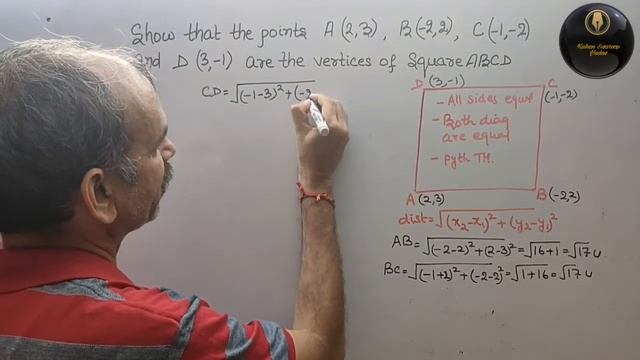 Show that the points A (2,3), B(-2,2), C(-1,-2)
and D (3,-1) are the vertices of Square ABCD
CD=√(-1-3)²+(-2
D (3,-1)
C
(-1,-2)
- All sides equal
- Both diag
are equal
- Pyth TH.
A (2,3)
B(-2,2)
dist=√(x₂-x₁)²+(y₂-y₁)²
AB=√(-2-2)²+(2-3)²=√16+1=√17 u
BC=√(-1+2)²+(-2-2)²=√1+16=√17 u